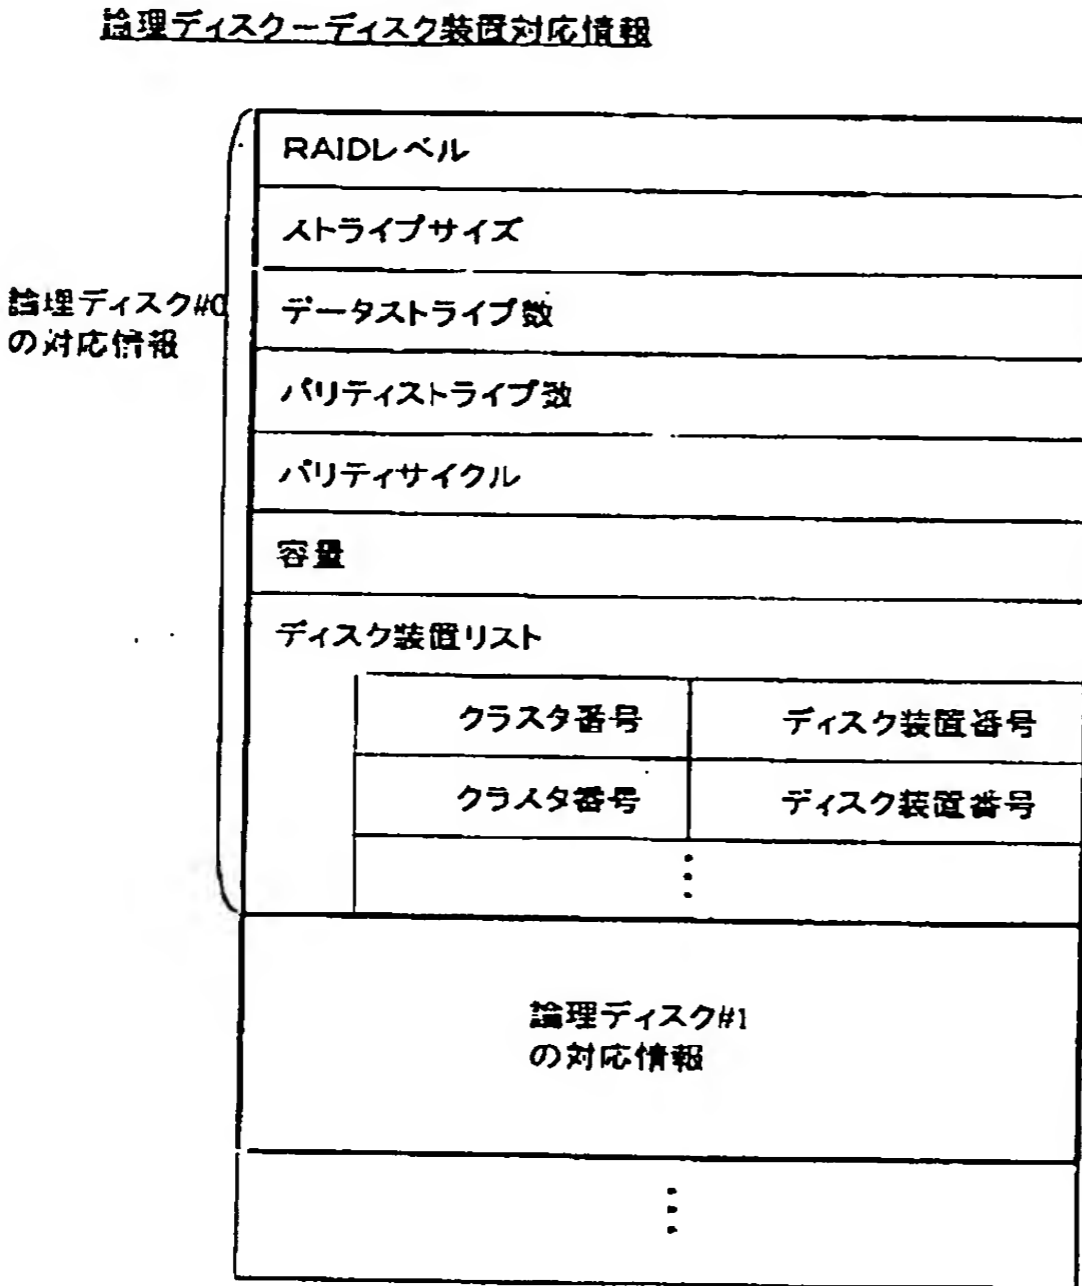 論理ディスクーディスク装置対応情報
RAIDレベル
ストライプサイズ
論理ディスク#0
の対応情報
データストライプ数
パリティストライプ数
パリティサイクル
容量
ディスク装置リスト
クラスタ番号 ディスク装置番号
クラスタ番号 ディスク装置番号
論理ディスク#1
の対応情報